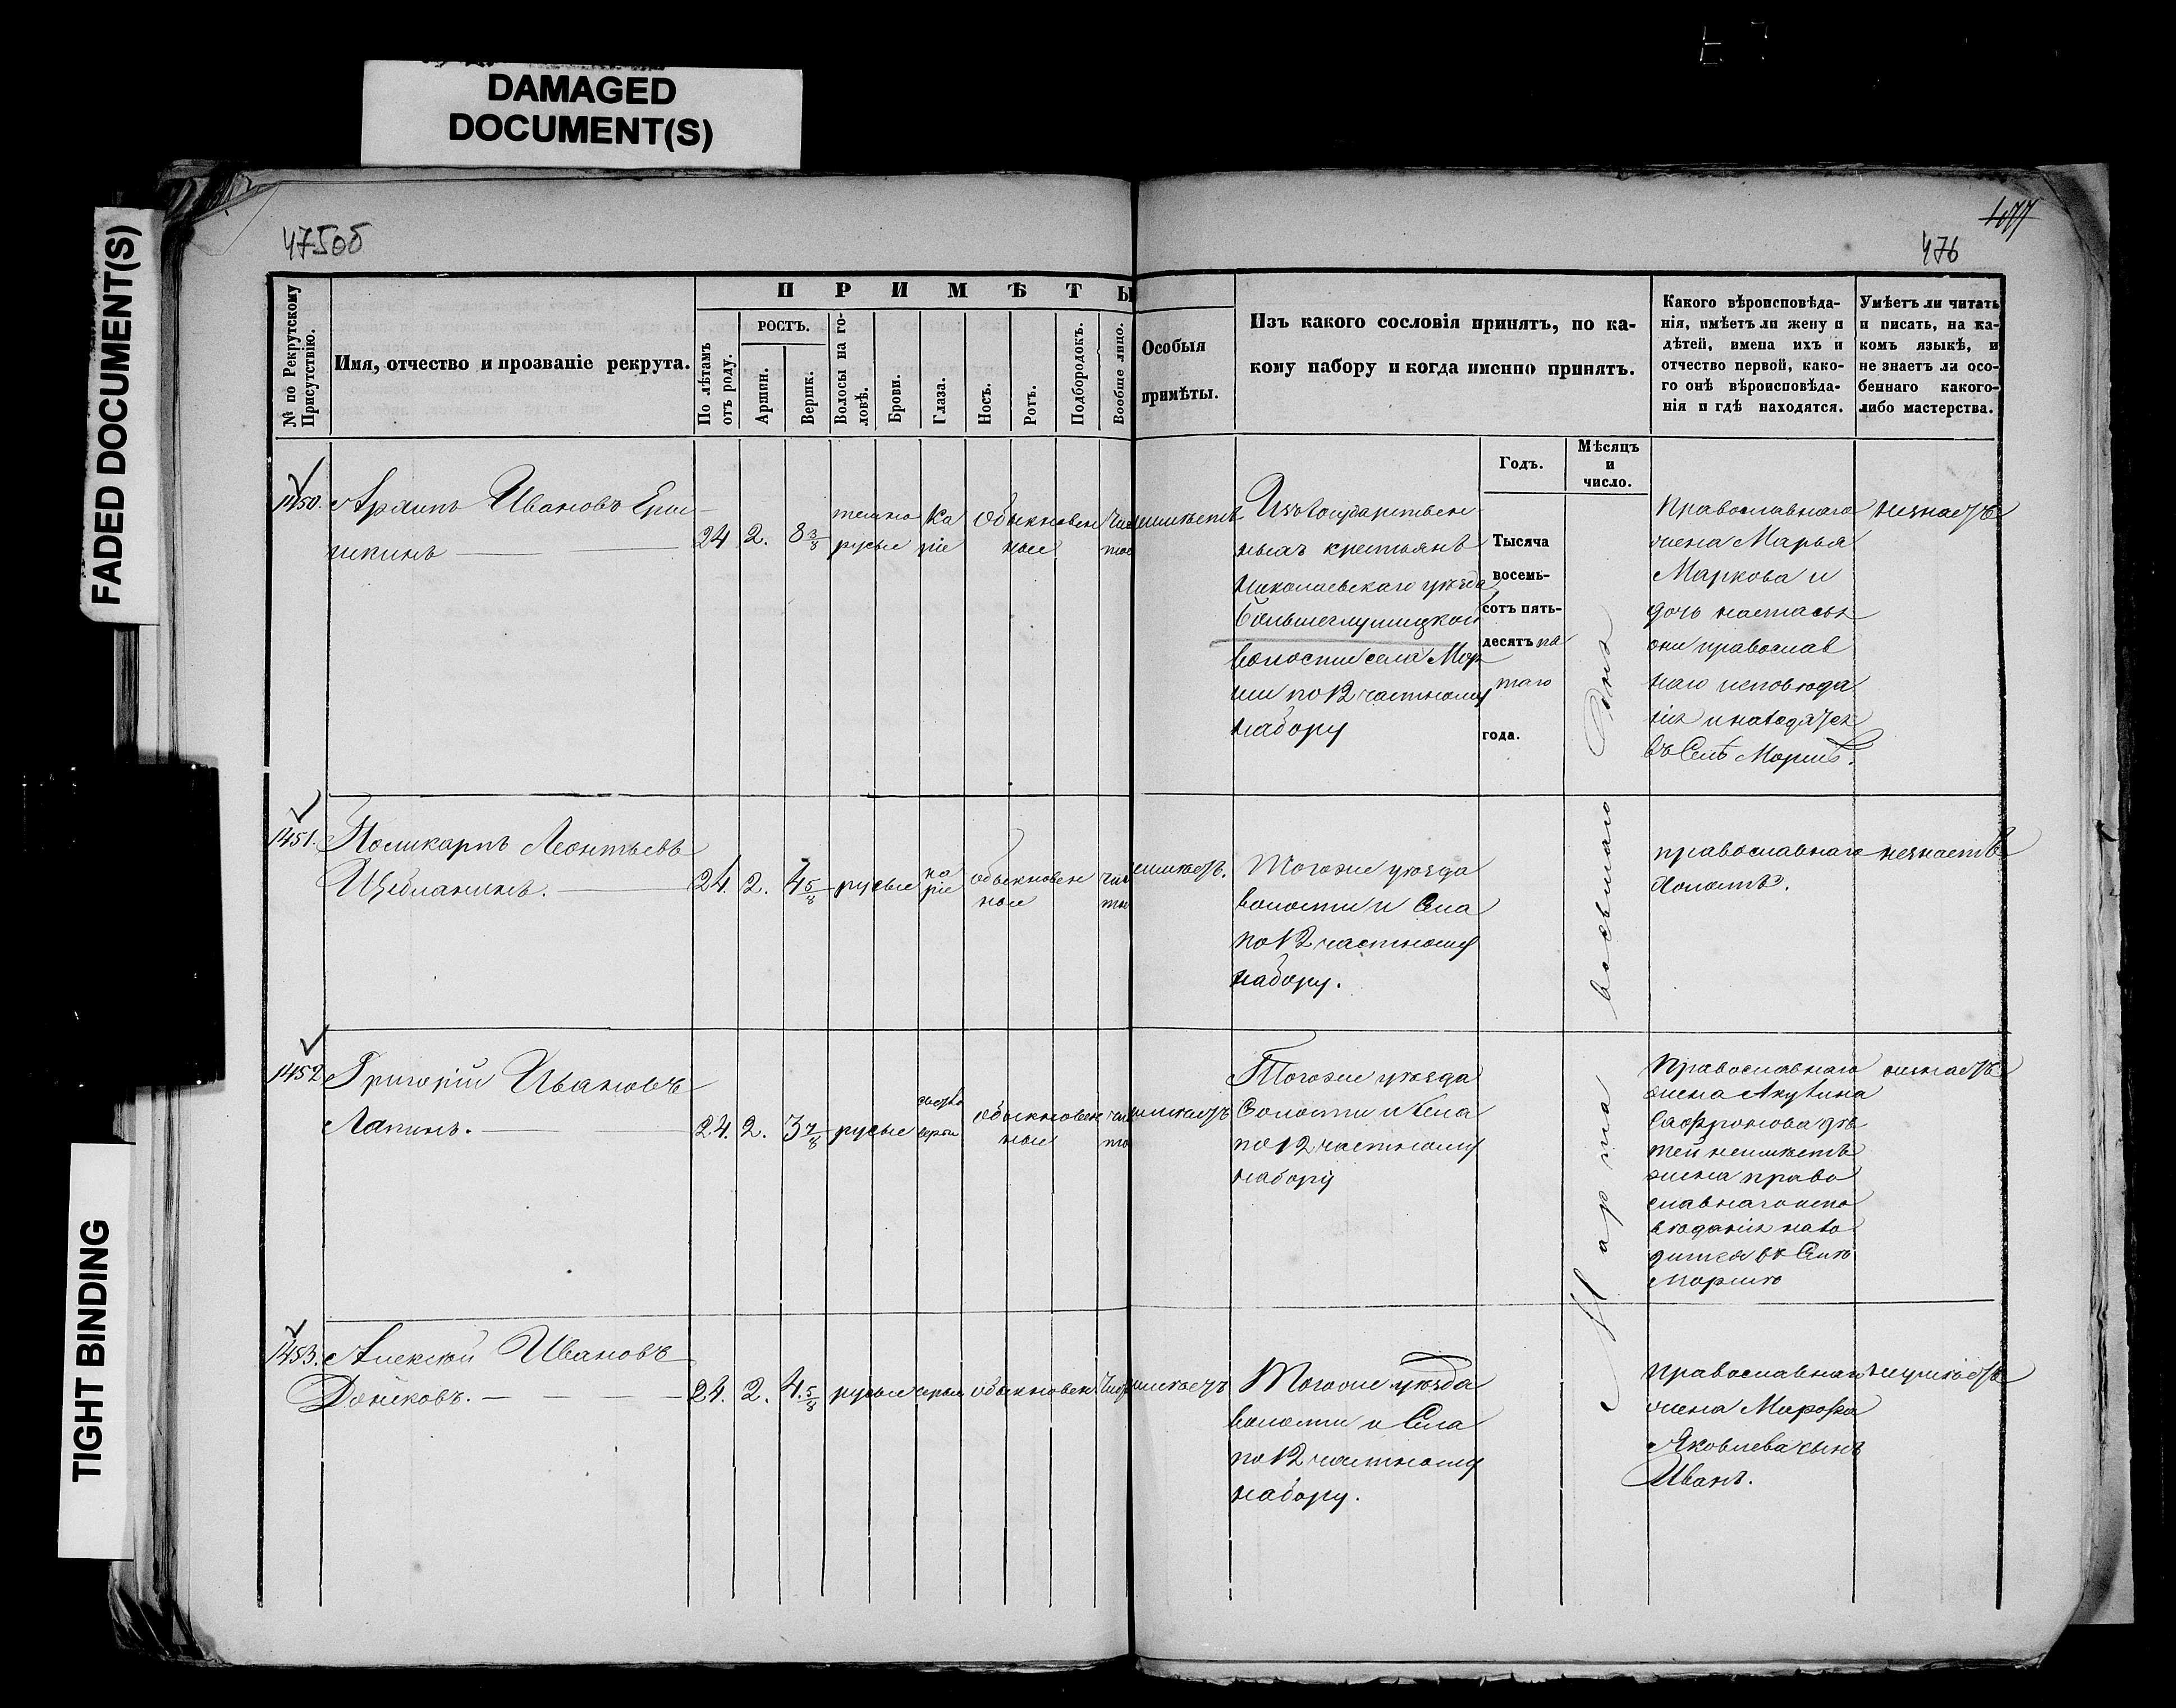 DAMAGED
DOCUMENT(S)
FADED DOCUMENT(S)
TIGHT BINDING
475об
477
476
№ по Рекрутскому Присутствію.
Имя, отчество и прозваніе рекрута.
ПРИМѢТЫ
По лѣтамъ отъ роду.
РОСТЪ.
Аршин.
Вершк.
Волосы на головѣ.
Брови.
Глаза.
Носъ.
Ротъ.
Подбородокъ.
Вообще лицо.
Особыя
примѣты.
Изъ какого сословія принятъ, по ка-
кому набору и когда именно принятъ.
Годъ.
Мѣсяцъ
и
число.
Какого вѣроисповѣда-
нія, имѣетъ ли жену и
дѣтей, имена ихъ и
отчество первой, како-
го онѣ вѣроисповѣда-
нія и гдѣ находятся.
Умѣетъ ли читать
и писать, на ка-
комъ языкѣ, и
не знаетъ ли осо-
беннаго какого-
либо мастерства.
1450.
Архипъ Ивановъ Ерм-
шкинъ
24
2.
8 3/8
темно
русые
Ка
ріе
Обыкновен
ные
чис
тое
неимѣетъ
Изъ Государствен
ныхъ крестьянъ
Николаевскаго уѣзда
Большеглушицкой
волости села Мор
ши по 12 частному
набору
Тысяча
восемь-
сотъ пять-
десятъ пя
таго
года.
Марта восьмаго дня
Православнаго
жена Марья
Маркова и
дочь настасья
они православ
наго исповѣда
нія и находятся
въ Селѣ Моршѣ.
незнаетъ
1451.
Поликарпъ Леонтьевъ
24.
2.
4 5/8
русые
ка
ріе
обыкновен
ные
чис
тое
неимѣетъ.
Тогоже уѣзда
волости и Села
по 12 частному
набору.
православнаго
Холостъ.
незнаетъ
1452
Григорій Ивановъ
Лапинъ.
24.
2.
3 7/8
русые
свѣтло
серые
обыкновен
ные
чис
тое
неимѣетъ
Тогоже уѣзда
Волости и Села
по 12 частному
набору
Православнаго
жена Акулина
Сафронова дѣ
тей неимѣетъ
жена право
славнаго испо
вѣданія нахо
дится въ Селѣ
Моршѣ
незнаетъ
1453.
Алексѣй Ивановъ
Донсковъ.
24.
2.
4. 5/8
русые
серые
обыкновен
чист
неимѣетъ
Тогоже уѣзда
волости и Села
по 12 частному
набору.
Православнаго
жена Марфа
Яковлева сынъ
Иванъ.
неумѣетъ